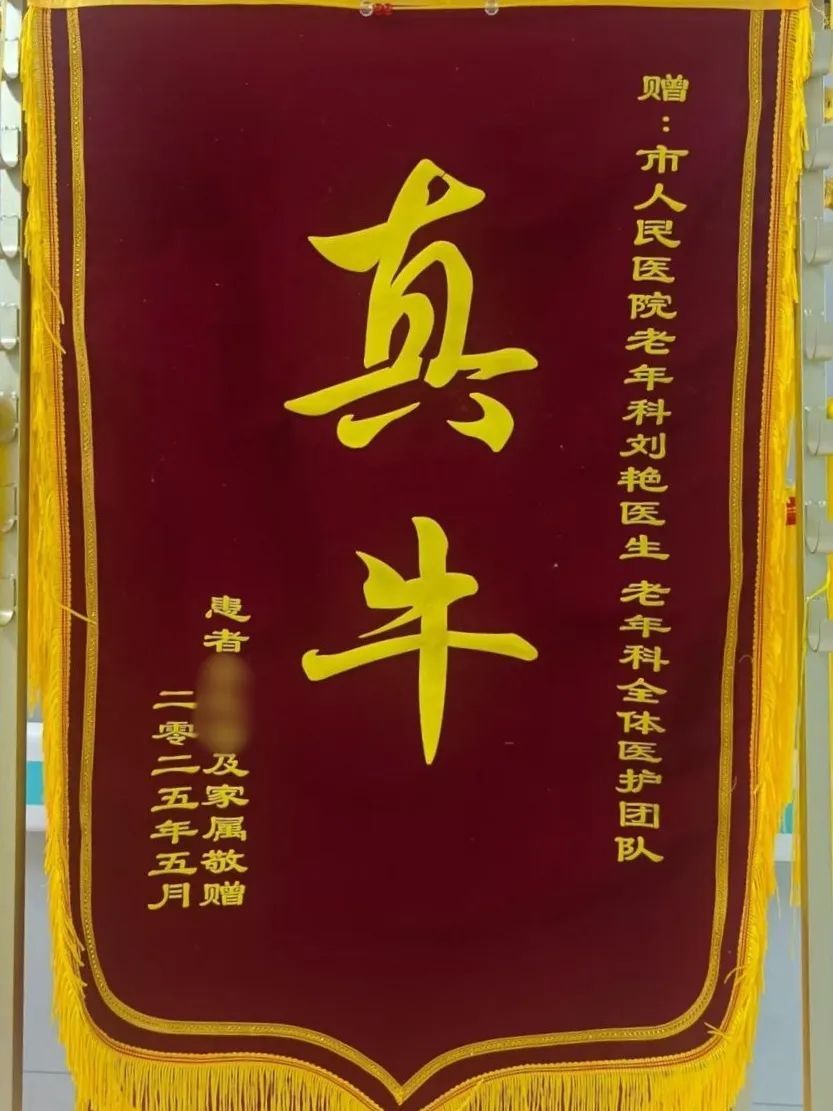 赠：市人民医院老年科刘艳医生 老年科全体医护团队
真牛
患者
及家属敬赠
二零二五年五月